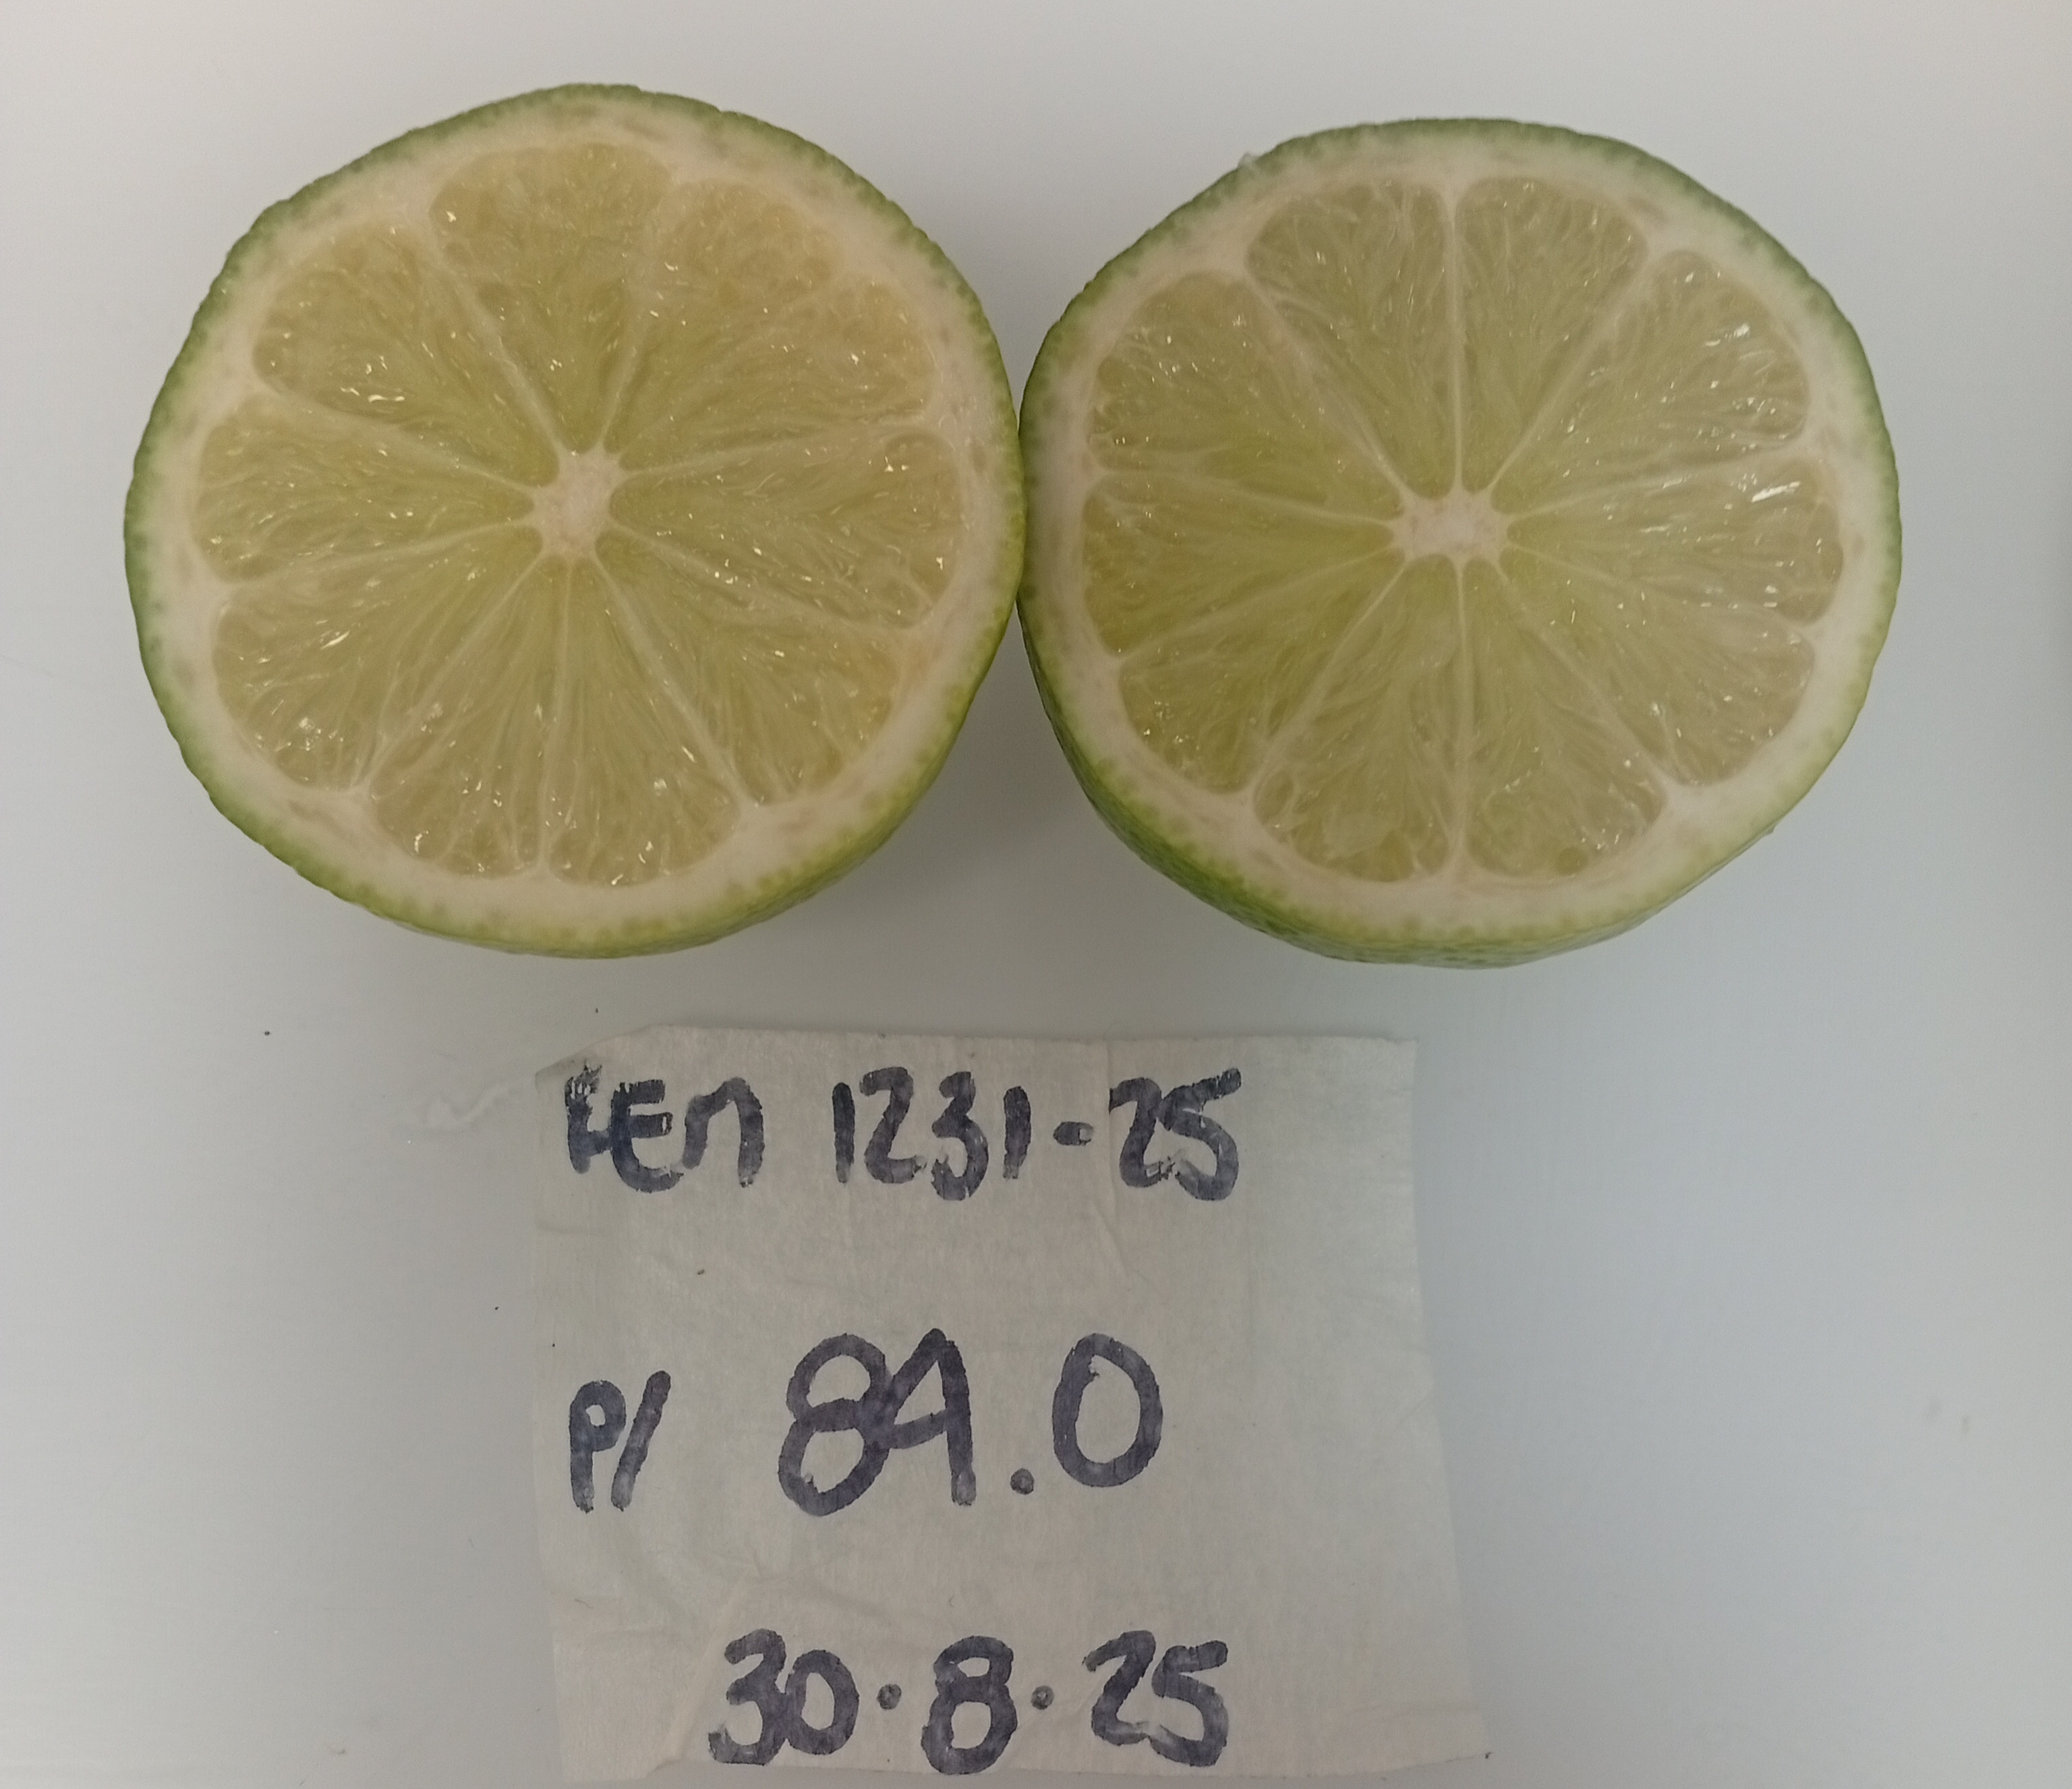 FEM 1231-25
P/ 84.0
30.8.25